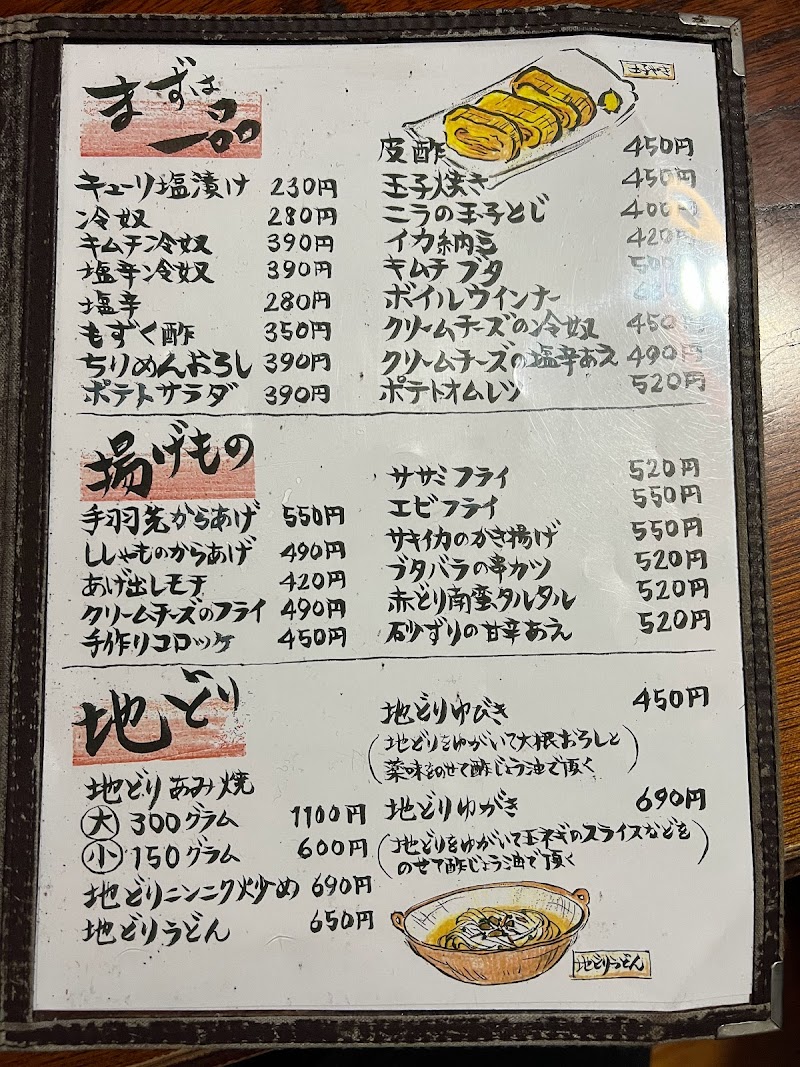 まずは一品
キューリ塩漬け 230円
冷奴 280円
キムチ冷奴 390円
塩辛冷奴 390円
塩辛 280円
もずく酢 350円
ちりめんおろし 390円
ポテトサラダ 390円
皮酢 450円
玉子焼き 450円
ニラの玉子とじ 400円
イカ納豆 420円
キムチブタ 500円
ボイルウインナー
クリームチーズの冷奴 450円
クリームチーズの塩辛あえ 490円
ポテトオムレツ 520円
揚げもの
手羽先からあげ 550円
ししゃものからあげ 490円
あげ出しモチ 420円
クリームチーズのフライ 490円
手作りコロッケ 450円
ササミフライ 520円
エビフライ 550円
サキイカのかき揚げ 550円
ブタバラの串カツ 520円
赤どり南蛮タルタル 520円
砂ずりの甘辛あえ 520円
地どり
地どりあみ焼
大 300グラム 1100円
小 150グラム 600円
地どりニンニク炒め 690円
地どりうどん 650円
地どりゆびき 450円
(地どりをゆがいて大根おろしと
薬味をのせて酢じょう油で頂く)
地どりゆがき 690円
(地どりをゆがいて玉ネギのスライスなどを
のせて酢じょう油で頂く)
地どりうどん